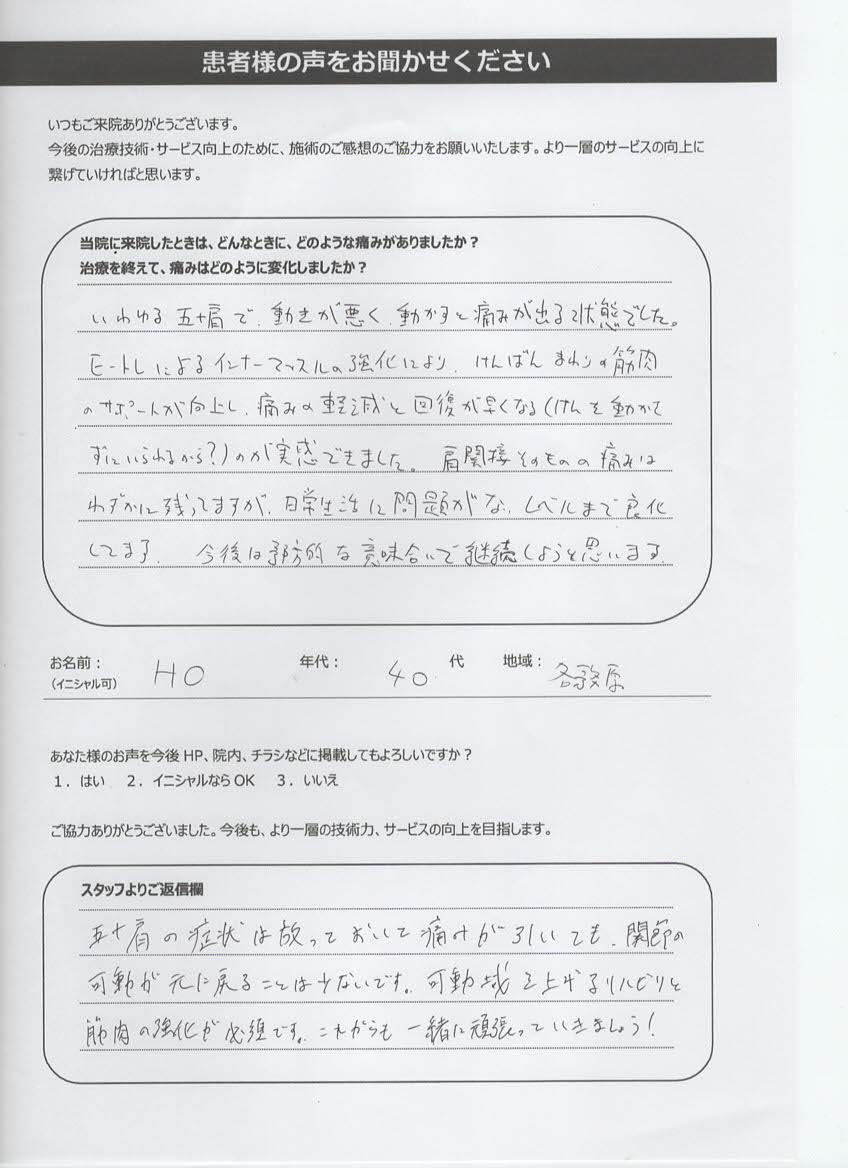 患者様の声をお聞かせください
いつもご来院ありがとうございます。
今後の治療技術・サービス向上のために、施術のご感想のご協力をお願いいたします。より一層のサービスの向上に
繋げていければと思います。
当院に来院したときは、どんなときに、どのような痛みがありましたか？
治療を終えて、痛みはどのように変化しましたか？
いわゆる五十肩で、動きが悪く、動かすと痛みが出る状態でした。
EートレによるインナーマッスルのP強化により、けんばんまわりの筋肉
のサポートが向上し、痛みの軽減と回復が早くなる(けんを動かさ
ずにいられるから?)のが実感できました。肩関接そのものの痛みは
わずかに残ってますが、日常生活に問題がないレベルまで良化
してます。 今後は予防的な意味合いで継続しようと思います
お名前：
(イニシャル可)
HO
年代：
40
代
地域：
各務原
あなた様のお声を今後 HP、院内、チラシなどに掲載してもよろしいですか？
1．はい 2．イニシャルなら OK 3．いいえ
ご協力ありがとうございました。今後も、より一層の技術力、サービスの向上を目指します。
スタッフよりご返信欄
五十肩の症状は放っておいて痛みが引いても、関節の
可動が元に戻ることは少ないです。可動域を上げるリハビリと
筋肉の強化が必須です。これからも一緒に頑張っていきましょう！